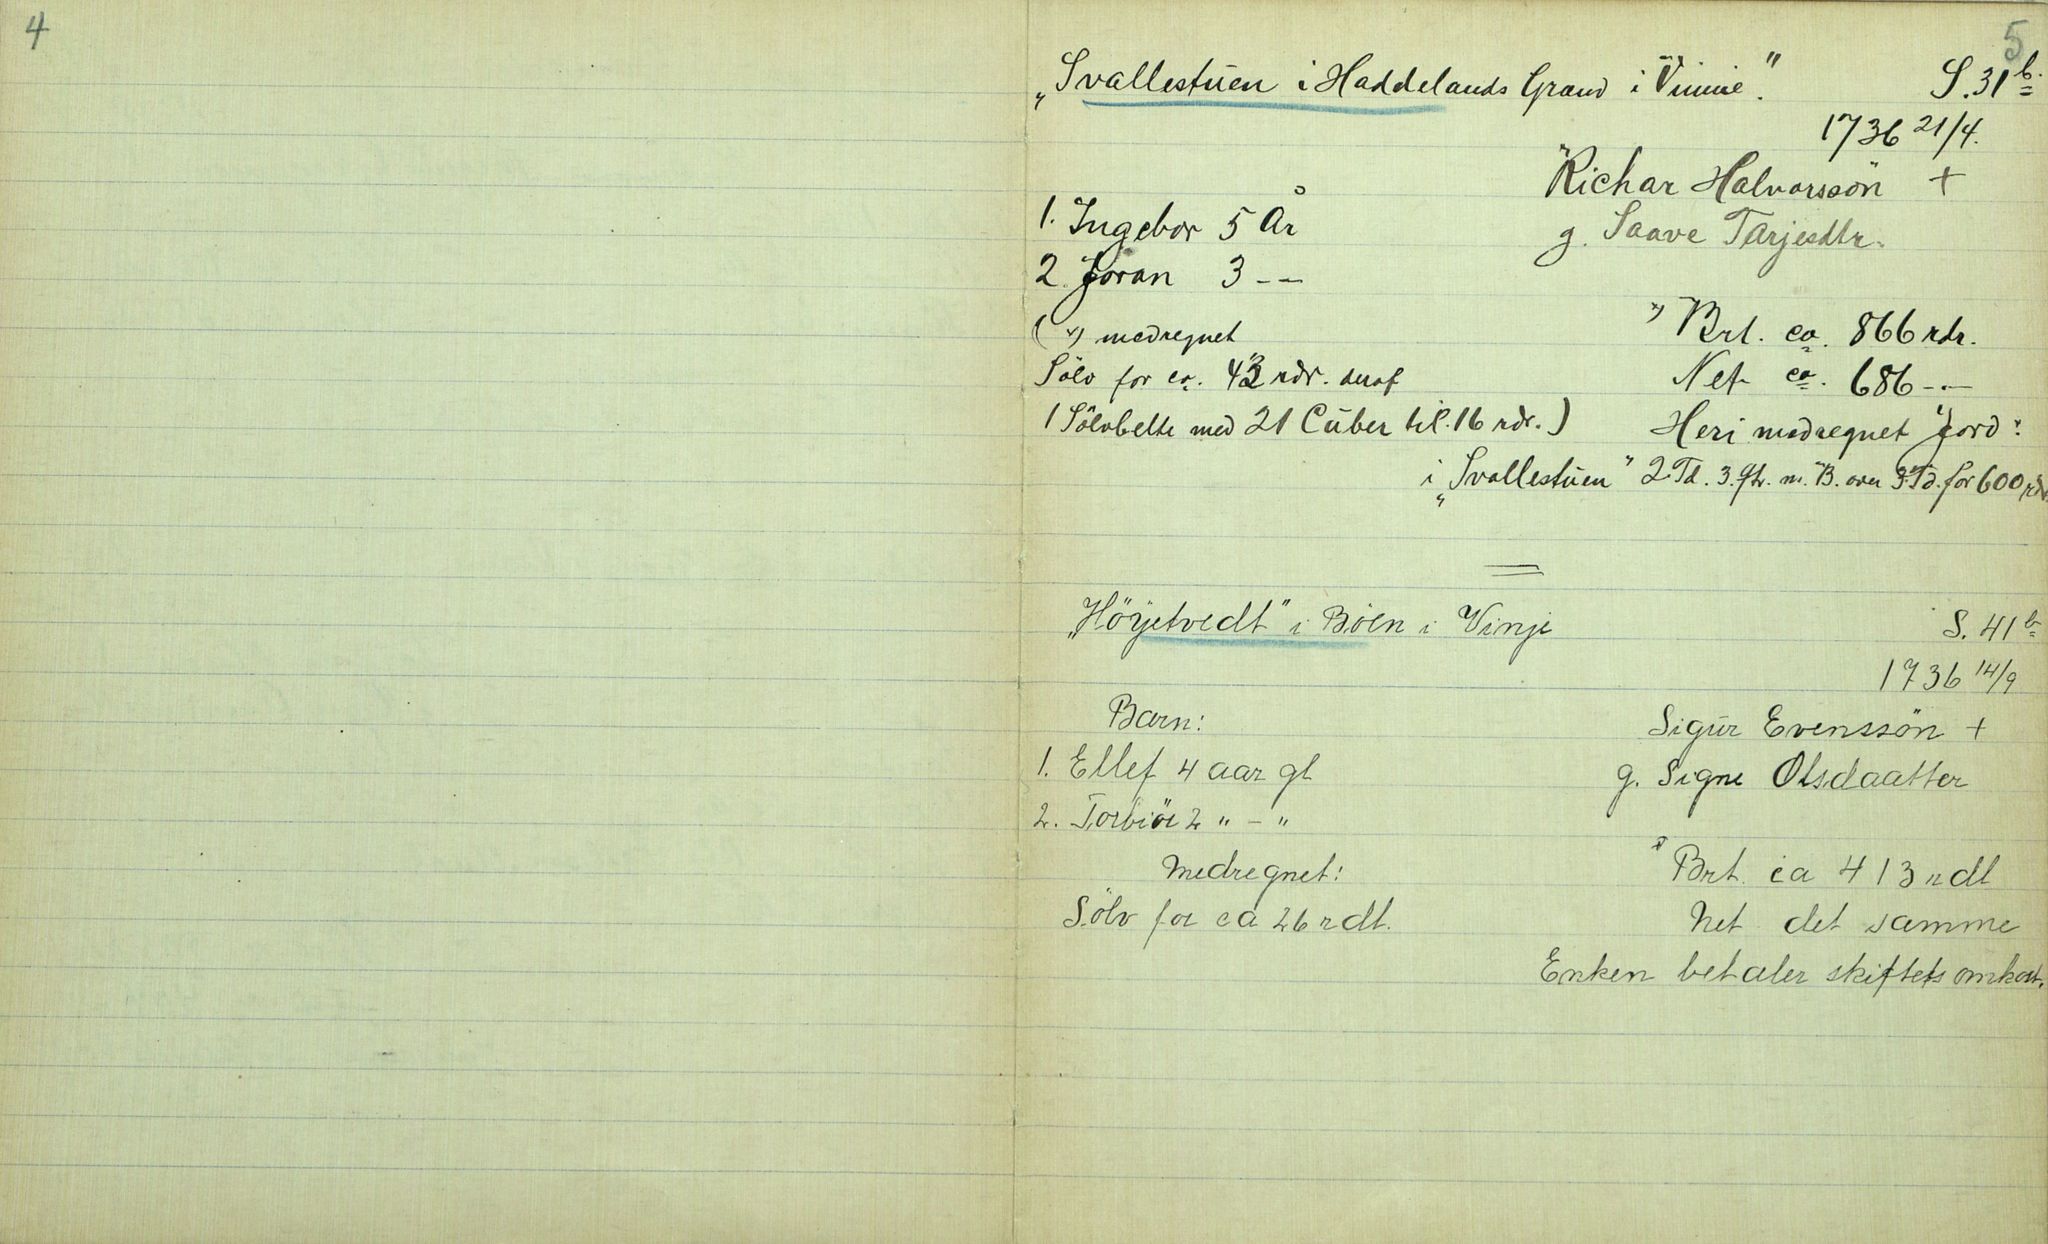 4
5
„Svallestuen i Haddelands Grand i Vinnie".
S. 31b.
1736 21/4.
"Richar Halvorssön" +
g. Saave Tarjesdtr.
1. Ingebor 5 År
2. Joran 3 – –
*) Brt. ca. 866 rdr.
Net ca. 686 – –
( *) medregnet
Sölv for ca. 43 rdr. deraf
1 Sölvbelte med 21 Cüber til 16 rdr.)
Heri medregnet Jord:
i „Svallestuen" 2 Td. 3. m. B. over 3 Td. for 600 rdr.
„Höÿetvedt" i Böen i Vinje
S. 41b
1736 14/9
Sigür Evenssön +
g. Signe Olsdaatter
Barn:
1. Ellef 4 aar gl
2. Torbiör 2 " – "
Brt. ca 413 rdl
Net det samme
Enken betaler skiftets omkost.
Medregnet:
Sölv for ca 26 rdl.